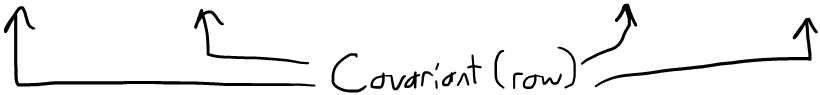 Covariant (row)